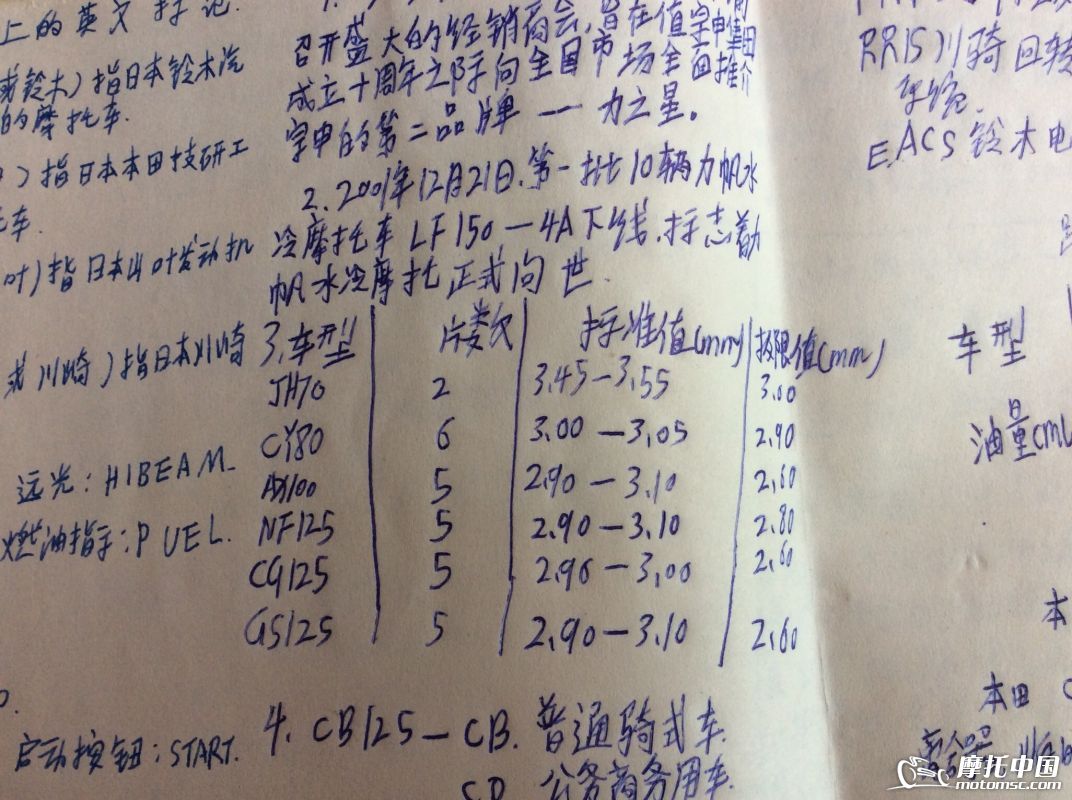 上的英文标记.
或铃木)指日本铃木汽
的摩托车.
)指日本本田技研工
车.
叶)指日本山叶发动机
或川崎)指日本川崎
远光:HIBEAM.
燃油指示:PUEL.
启动按钮:START.
召开盛大的经销商会,旨在值宇申集团
成立十周年之际向全国市场全面推介
宇申的第二品牌一力之星。
2.2001年12月21日.第一批10辆力帆水
冷摩托车LF150-4A下线.标志着力
帆水冷摩托正式问世.
3.车型 片数 标准值(mm) 极限值(mm)
JH70 2 3.45-3.55 3.00
CY80 6 3.00-3.05 2.90
AX100 5 2.90-3.10 2.60
NF125 5 2.90-3.10 2.80
CG125 5 2.90-3.00 2.60
GS125 5 2.90-3.10 2.60
4.CB125-CB.普通骑式车.
CD 公务商务用车.
RRIS川骑回转
系统.
EACS铃木电
车型
油量(mL
本
本田C
摩托中国
motomsc.com